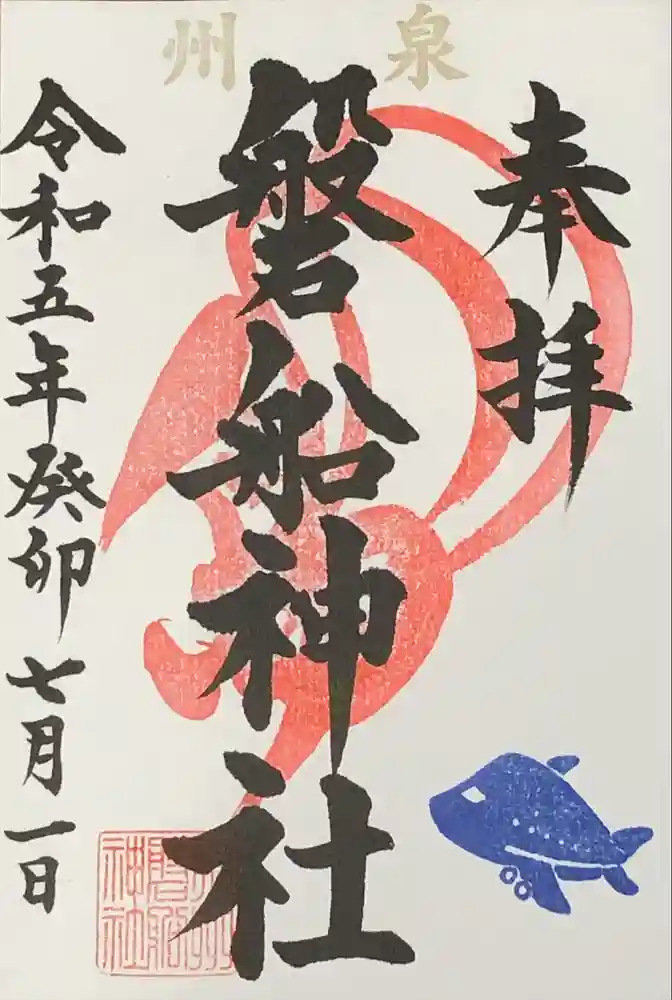 泉州
奉拝
磐船神社
令和五年癸卯七月一日